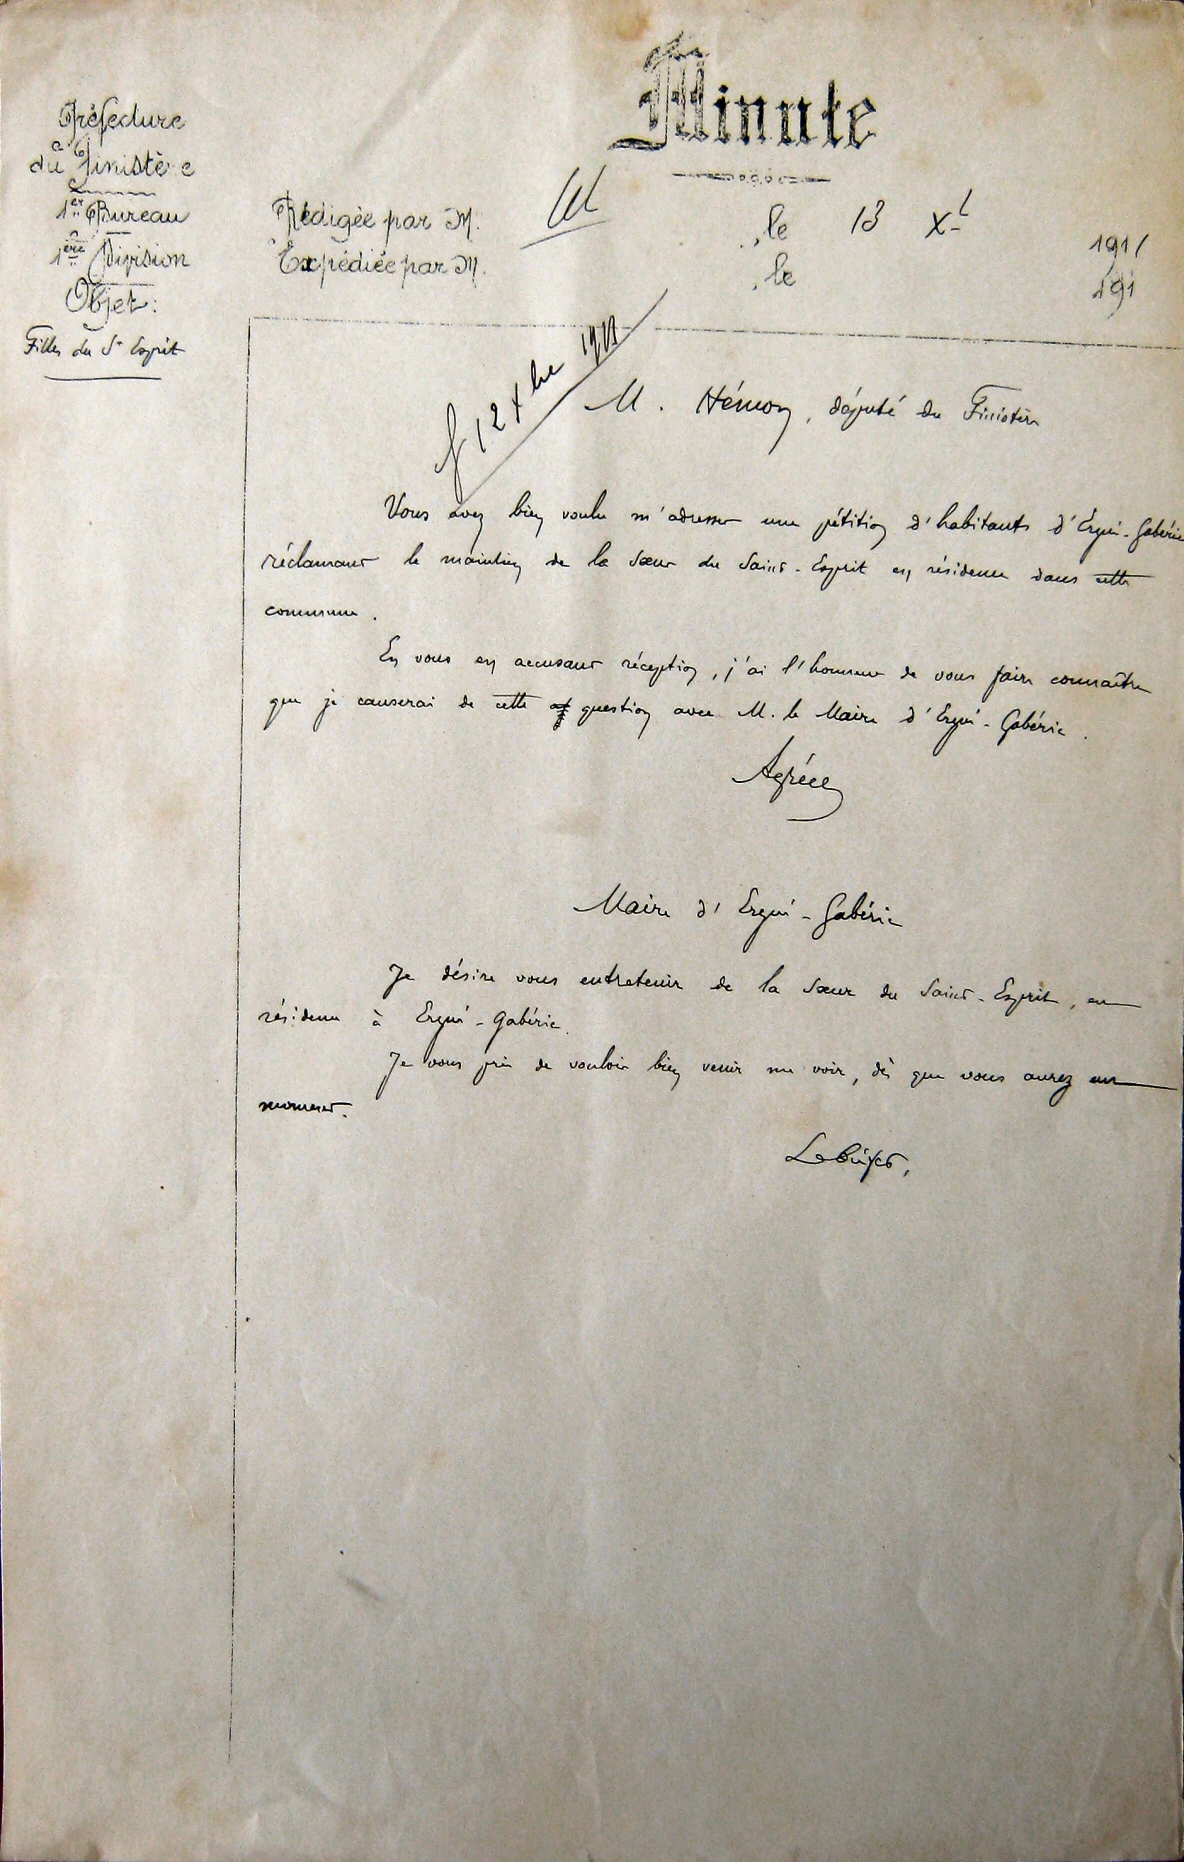 Minute
Préfecture
du Finistère
1er Bureau
1ère Division
Objet:
Filles du St Esprit
Rédigée par M. le 13 Xb 1911
Expédiée par M. le 191
12 Xbre 1911
M. Hémon, député du Finistère
Vous avez bien voulu m'adresser une pétition d'habitants d'Ergué-Gabéric
réclamant le maintien de la Sœur du Saint-Esprit en résidence dans cette
commune.
En vous en accusant réception, j'ai l'honneur de vous faire connaître
que je causerai de cette question avec M. le Maire d'Ergué-Gabéric.
Agréez
Maire d'Ergué-Gabéric
Je désire vous entretenir de la Sœur du Saint-Esprit, en
résidence à Ergué-Gabéric.
Je vous prie de vouloir bien venir me voir, dès que vous aurez un
moment.
Le Préfet,